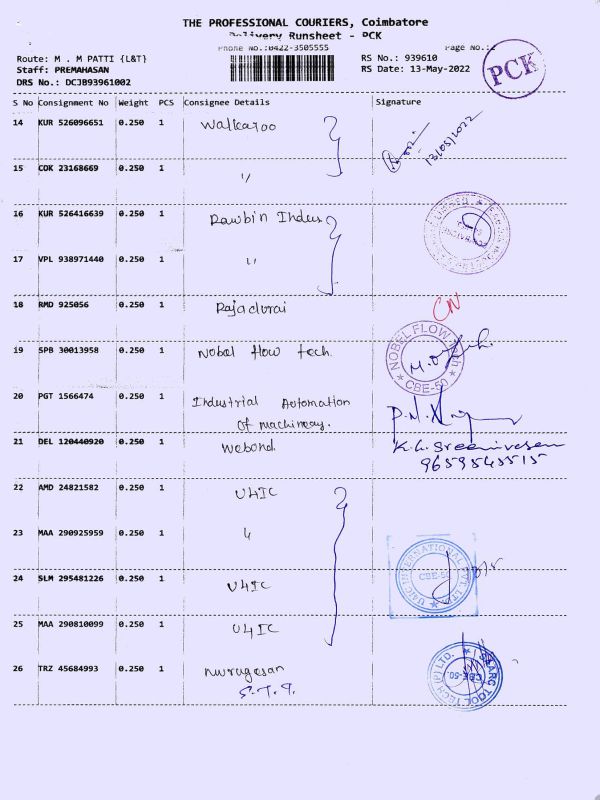 THE PROFESSIONAL COURIERS, Coimbatore
Delivery Runsheet - PCK
Phone No.:0422-3505555 Page No.:
Route: M . M PATTI {L&T} RS No.: 939610
Staff: PREMAHASAN RS Date: 13-May-2022
DRS No.: DCJB93961002
PCK
S No Consignment No Weight PCS Consignee Details Signature
14 KUR 526096651 0.250 1 Walkaroo
13/05/2022
15 COK 23168669 0.250 1 "
16 KUR 526416639 0.250 1 Rawbin Indus
17 VPL 938971440 0.250 1 "
18 RMD 925056 0.250 1 Rajadurai CN
19 SPB 30013958 0.250 1 Nobal flow tech.
NOBEL FLOW Tech
CBE-50
20 PGT 1566474 0.250 1 Industrial Automation
of machinery.
21 DEL 120440920 0.250 1 Webond K.G. Sreenivasan
9659545515
22 AMD 24821582 0.250 1 U4IC
23 MAA 290925959 0.250 1 "
24 SLM 295481226 0.250 1 U4IC
U4IC INTERNATIONAL PVT LTD
CBE-50
25 MAA 290810099 0.250 1 U4IC
26 TRZ 45684993 0.250 1 Murugesan
S.T.T.
TOOL TECH (P) LTD.
CBE-50.